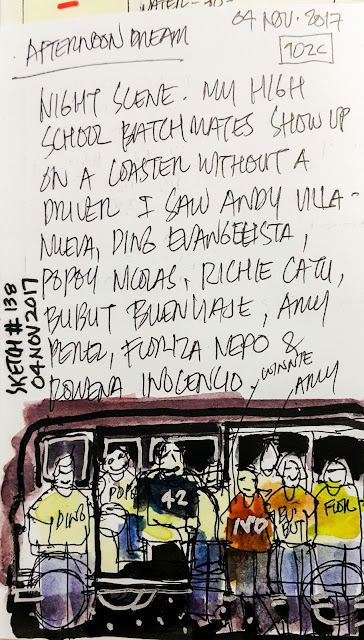 04 NOV. 2017
AFTERNOON DREAM
102C
NIGHT SCENE. MY HIGH
SCHOOL BATCHMATES SHOW UP
ON A COASTER WITHOUT A
DRIVER I SAW ANDY VILLA-
NUEVA, DING EVANGELISTA,
POPOY NICOLAS, RICHIE CATU,
BUBUT BUENVIAJE, AMY
PEREZ, FLORIZA NEPO &
ROWENA INOCENCIO, WINNIE
AMY
SKETCH # 138
04 NOV 2017
DING
POPO
42
NO
BU
BUT
FLOR